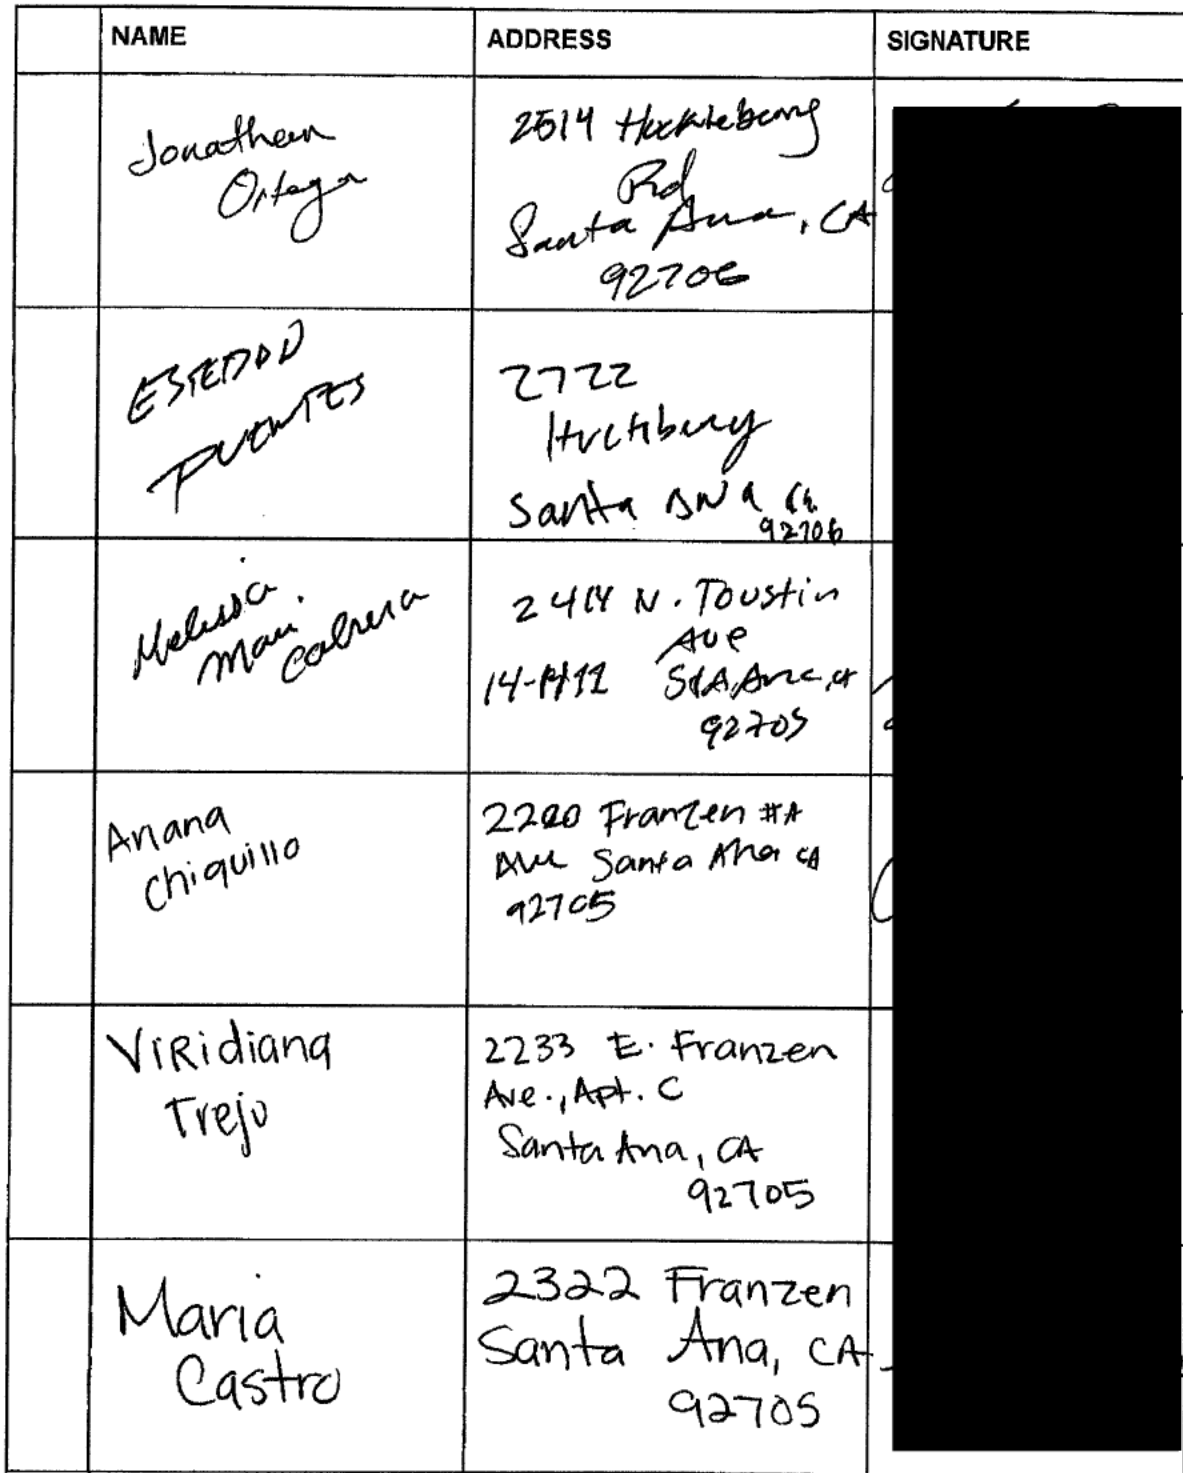 NAME ADDRESS SIGNATURE
Jonathan
Ortega
2514 Huckleberry
Rd
Santa Ana, CA
92706
FUENTES
2722
Santa ANA Ca.
92706
Melissa
Mari.
Cabrera
2414 N. Toustin
Ave
STA, Ana, CA
92705
Ariana
Chiquillo
2220 Franzen #A
Ave Santa Ana CA
92705
VIRidiana
Trejo
2233 E. Franzen
Ave., Apt. C
Santa Ana, CA
92705
Maria
Castro
2322 Franzen
Santa Ana, CA
92705